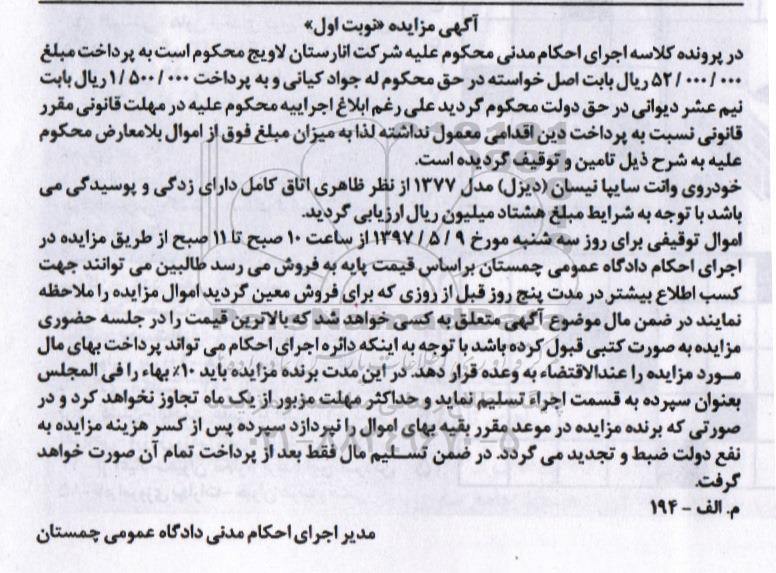 آگهی مزایده «نوبت اول»
در پرونده کلاسه اجرای احکام مدنی محکوم علیه شرکت انارستان لاویج محکوم است به پرداخت مبلغ
۵۲/۰۰۰/۰۰۰ ریال بابت اصل خواسته در حق محکوم له جواد کیانی و به پرداخت ۱/۵۰۰/۰۰۰ ریال بابت
نیم عشر دیوانی در حق دولت محکوم گردید علی رغم ابلاغ اجراییه محکوم علیه در مهلت قانونی مقرر
قانونی نسبت به پرداخت دین اقدامی معمول نداشته لذا به میزان مبلغ فوق از اموال بلامعارض محکوم
علیه به شرح ذیل تامین و توقیف گردیده است.
خودروی وانت سایپا نیسان (دیزل) مدل ۱۳۷۷ از نظر ظاهری اتاق کامل دارای زدگی و پوسیدگی می
باشد با توجه به شرایط مبلغ هشتاد میلیون ریال ارزیابی گردید.
اموال توقیفی برای روز سه شنبه مورخ ۱۳۹۷/۵/۹ از ساعت ۱۰ صبح تا ۱۱ صبح از طریق مزایده در
اجرای احکام دادگاه عمومی چمستان براساس قیمت پایه به فروش می رسد طالبین می توانند جهت
کسب اطلاع بیشتر در مدت پنج روز قبل از روزی که برای فروش معین گردید اموال مزایده را ملاحظه
نمایند در ضمن مال موضوع آگهی متعلق به کسی خواهد شد که بالاترین قیمت را در جلسه حضوری
مزایده به صورت کتبی قبول کرده باشد با توجه به اینکه دائره اجرای احکام می تواند پرداخت بهای مال
مورد مزایده را عندالاقتضاء به وعده قرار دهد. در این مدت برنده مزایده باید ۱۰٪ بهاء را فی المجلس
بعنوان سپرده به قسمت اجراء تسلیم نماید و حداکثر مهلت مزبور از یک ماه تجاوز نخواهد کرد و در
صورتی که برنده مزایده در موعد مقرر بقیه بهای اموال را نپردازد سپرده پس از کسر هزینه مزایده به
نفع دولت ضبط و تجدید می گردد. در ضمن تسلیم مال فقط بعد از پرداخت تمام آن صورت خواهد
گرفت.
م. الف - ۱۹۴
مدیر اجرای احکام مدنی دادگاه عمومی چمستان
ParsNamadData
۰۲۱-۸۸۳۴۹۶۷۰-۵